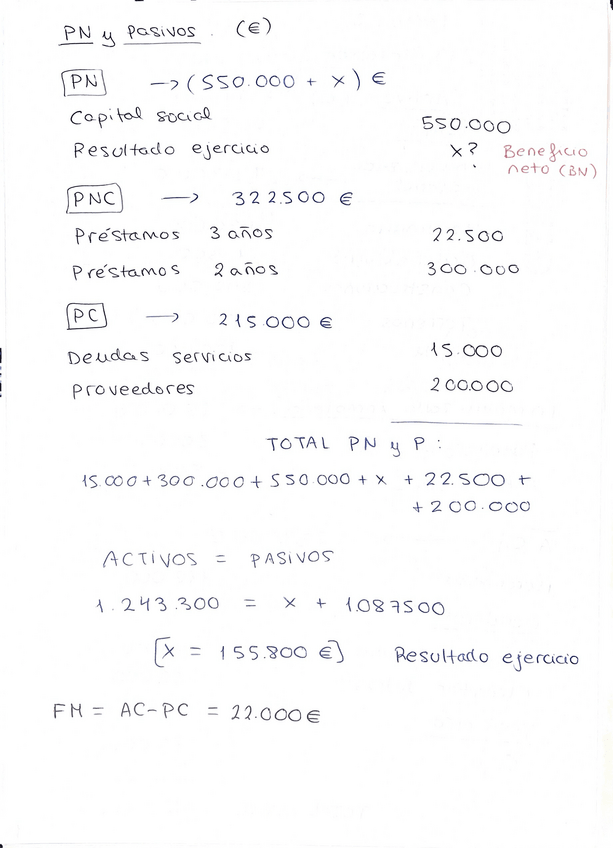 PN y Pasivos. (€)
PN → (550.000 + x) €
Capital social 550.000
Resultado ejercicio x? Beneficio
neto (BN)
PNC → 322.500 €
Préstamos 3 años 22.500
Préstamos 2 años 300.000
PC → 215.000 €
Deudas servicios 15.000
Proveedores 200.000
TOTAL PN y P :
15.000 + 300.000 + 550.000 + x + 22.500 +
+ 200.000
ACTIVOS = PASIVOS
1.243.300 = x + 1.087500
[x = 155.800 €] Resultado ejercicio
FM = AC-PC = 22.000 €